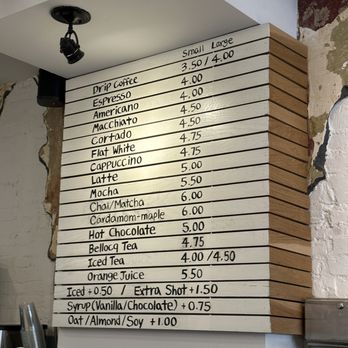 Small Large
Drip Coffee 3.50 / 4.00
Espresso 4.00
Americano 4.00
Macchiato 4.50
Cortado 4.50
Flat White 4.75
Cappuccino 4.75
Latte 5.00
Mocha 5.50
Chai/Matcha 6.00
Cardamom-maple 6.00
Hot Chocolate 5.00
Bellocq Tea 4.75
Iced Tea 4.00 / 4.50
Orange Juice 5.50
Iced +0.50 / Extra Shot +1.50
Syrup (Vanilla/Chocolate) +0.75
Oat/Almond/Soy +1.00